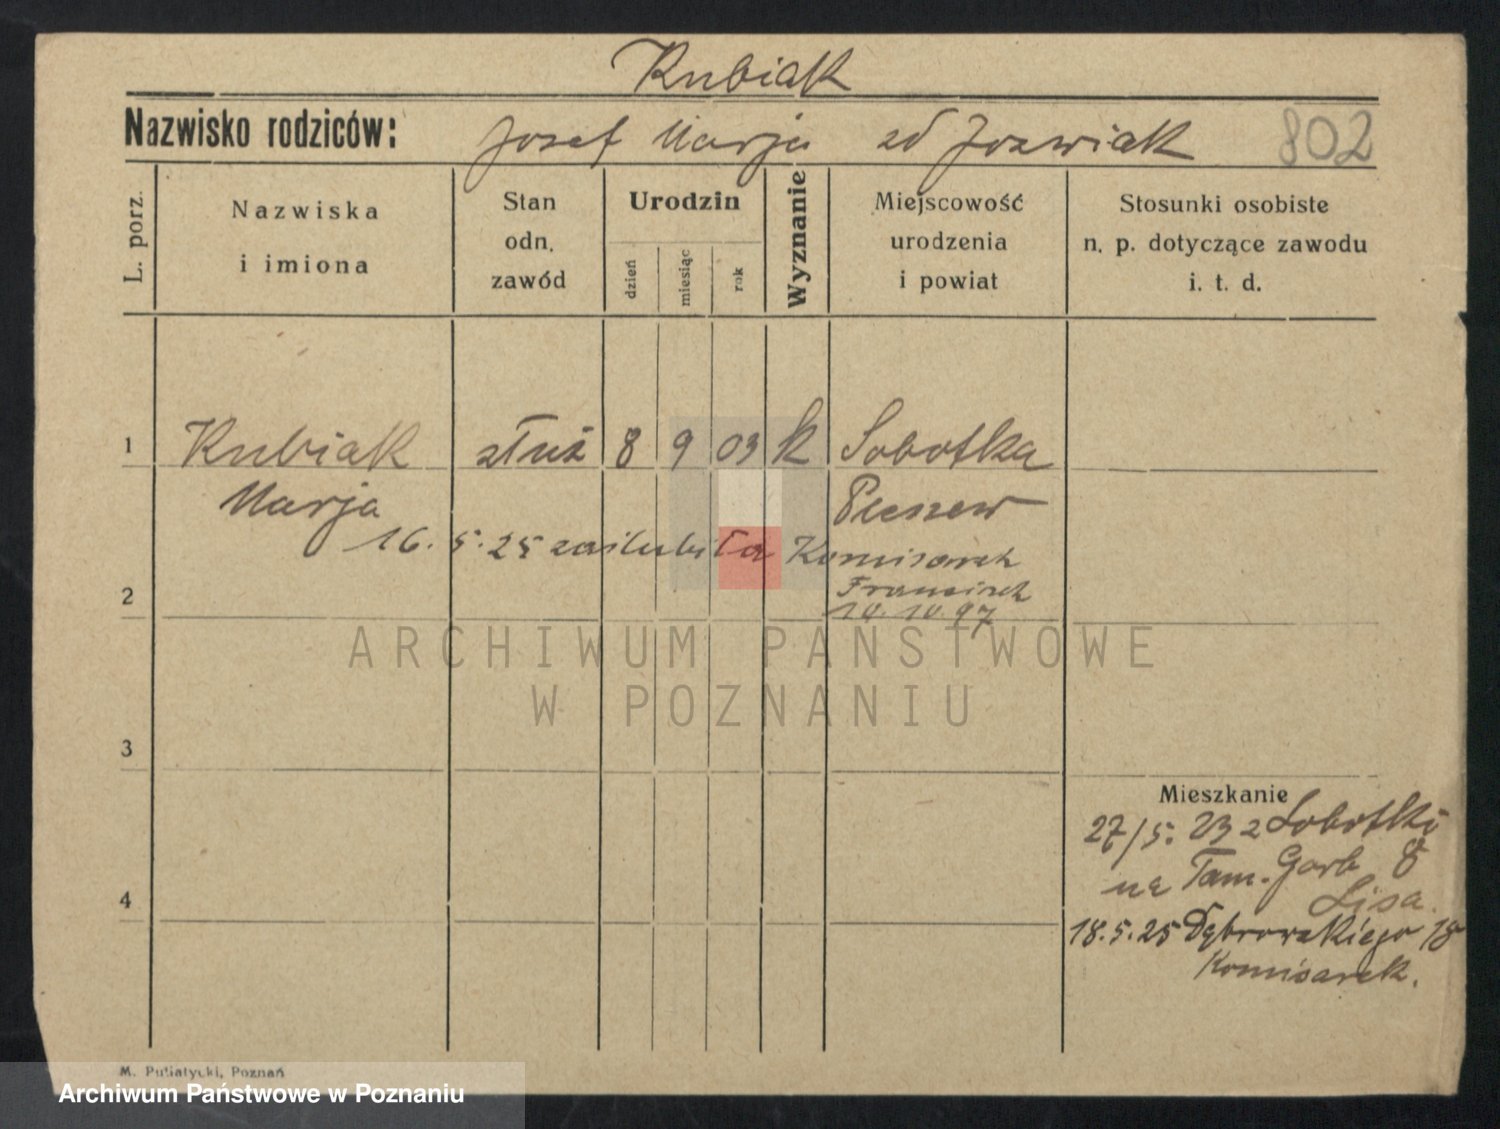 Kubiak
Nazwisko rodziców: Josef Marja zd Jozwiak 802
L. porz.
Nazwiska
i imiona
Stan
odn.
zawód
Urodzin
dzień
miesiąc
rok
Wyznanie
Miejscowość
urodzenia
i powiat
Stosunki osobiste
n. p. dotyczące zawodu
i. t. d.
1 Kubiak służ 8 9 03 k Sobotka
Marja Pleszew
16. 5. 25 zaślubiła Komisarek
Franciszek
2
10. 10. 97
ARCHIWUM PAŃSTWOWE
W POZNANIU
3
Mieszkanie
27/5. 23 z Sobotki
na Tam. Garb 8
Lisa.
4
18. 5. 25 Dąbrowskiego 18
Komisarek.
M. Putiatycki, Poznań
Archiwum Państwowe w Poznaniu